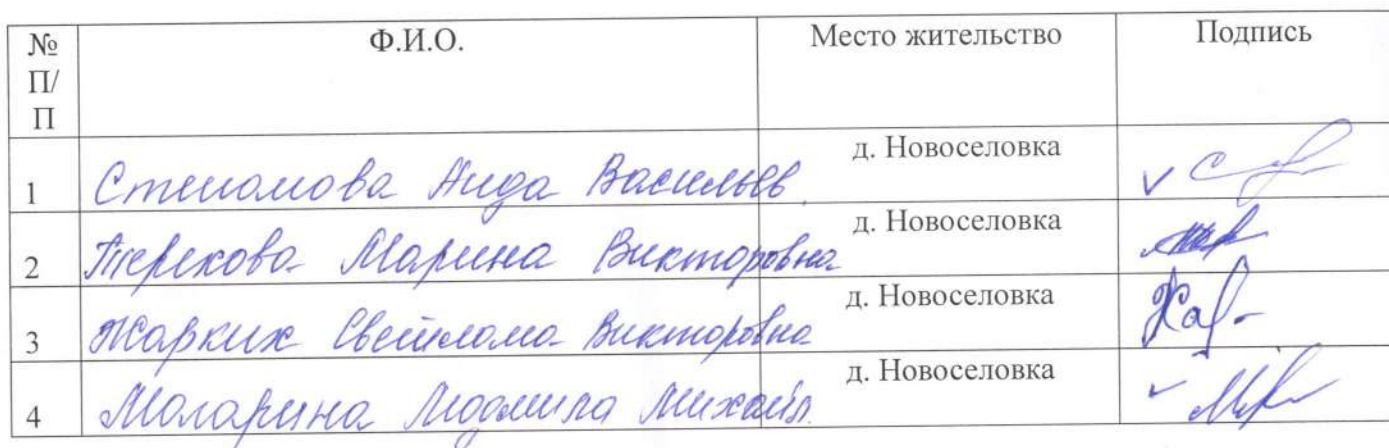 № П/П Ф.И.О. Место жительство Подпись
1 Аида Васильев. д. Новоселовка
2 Терехова Марина Викторовна д. Новоселовка
3 Жарких Светлана Викторовна д. Новоселовка
4 Людмила Михайл. д. Новоселовка